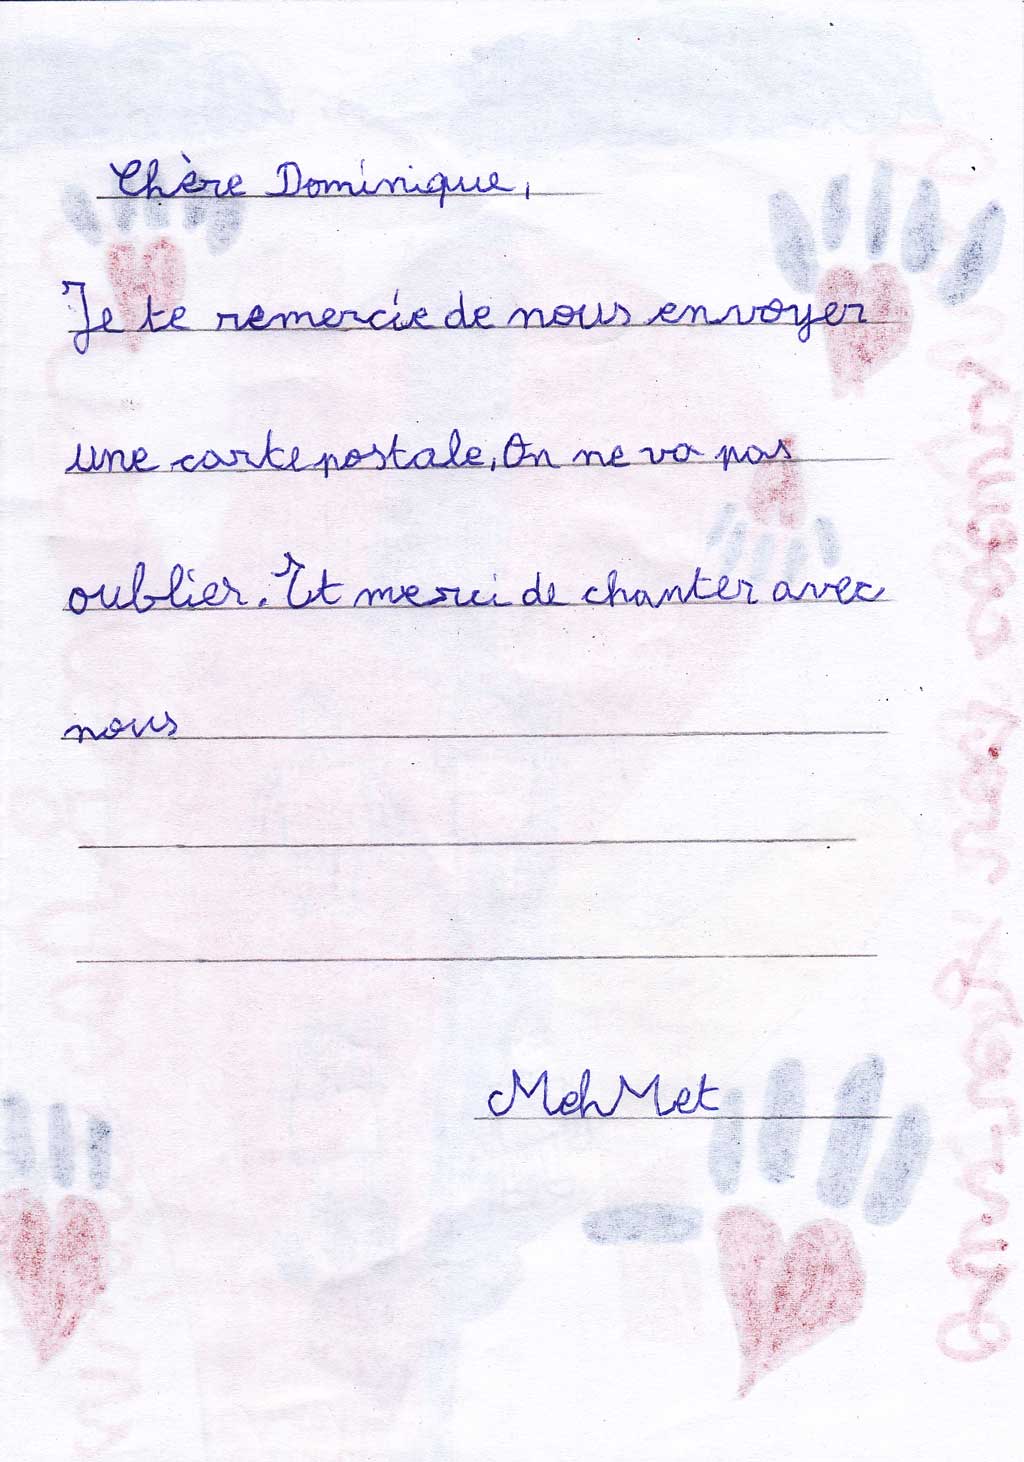 Chère Dominique,
Je te remercie de nous envoyer
une carte postale. On ne va pas
oublier. Et merci de chanter avec
nous
MehMet